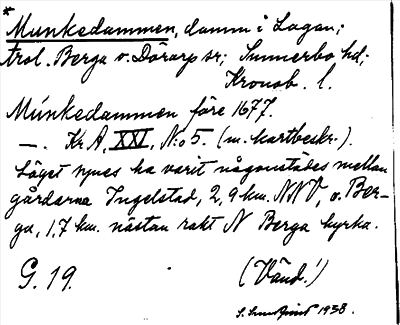 * Munkedammen, damm i Lagan;
trol. Berga o. Dörarp sr; Sunnerbo hd;
Kronob. l.
Múnkedammen före 1677.
—. Kr A, XXI, N:o 5. (m. kartbeskr.).
Läget synes ha varit någonstädes mellan
gårdarna Ingelstad, 2,9 km. NNV, o. Ber-
ga, 1,7 km. nästan rakt N Berga kyrka.
G. 19.
(Vänd!)
1938.